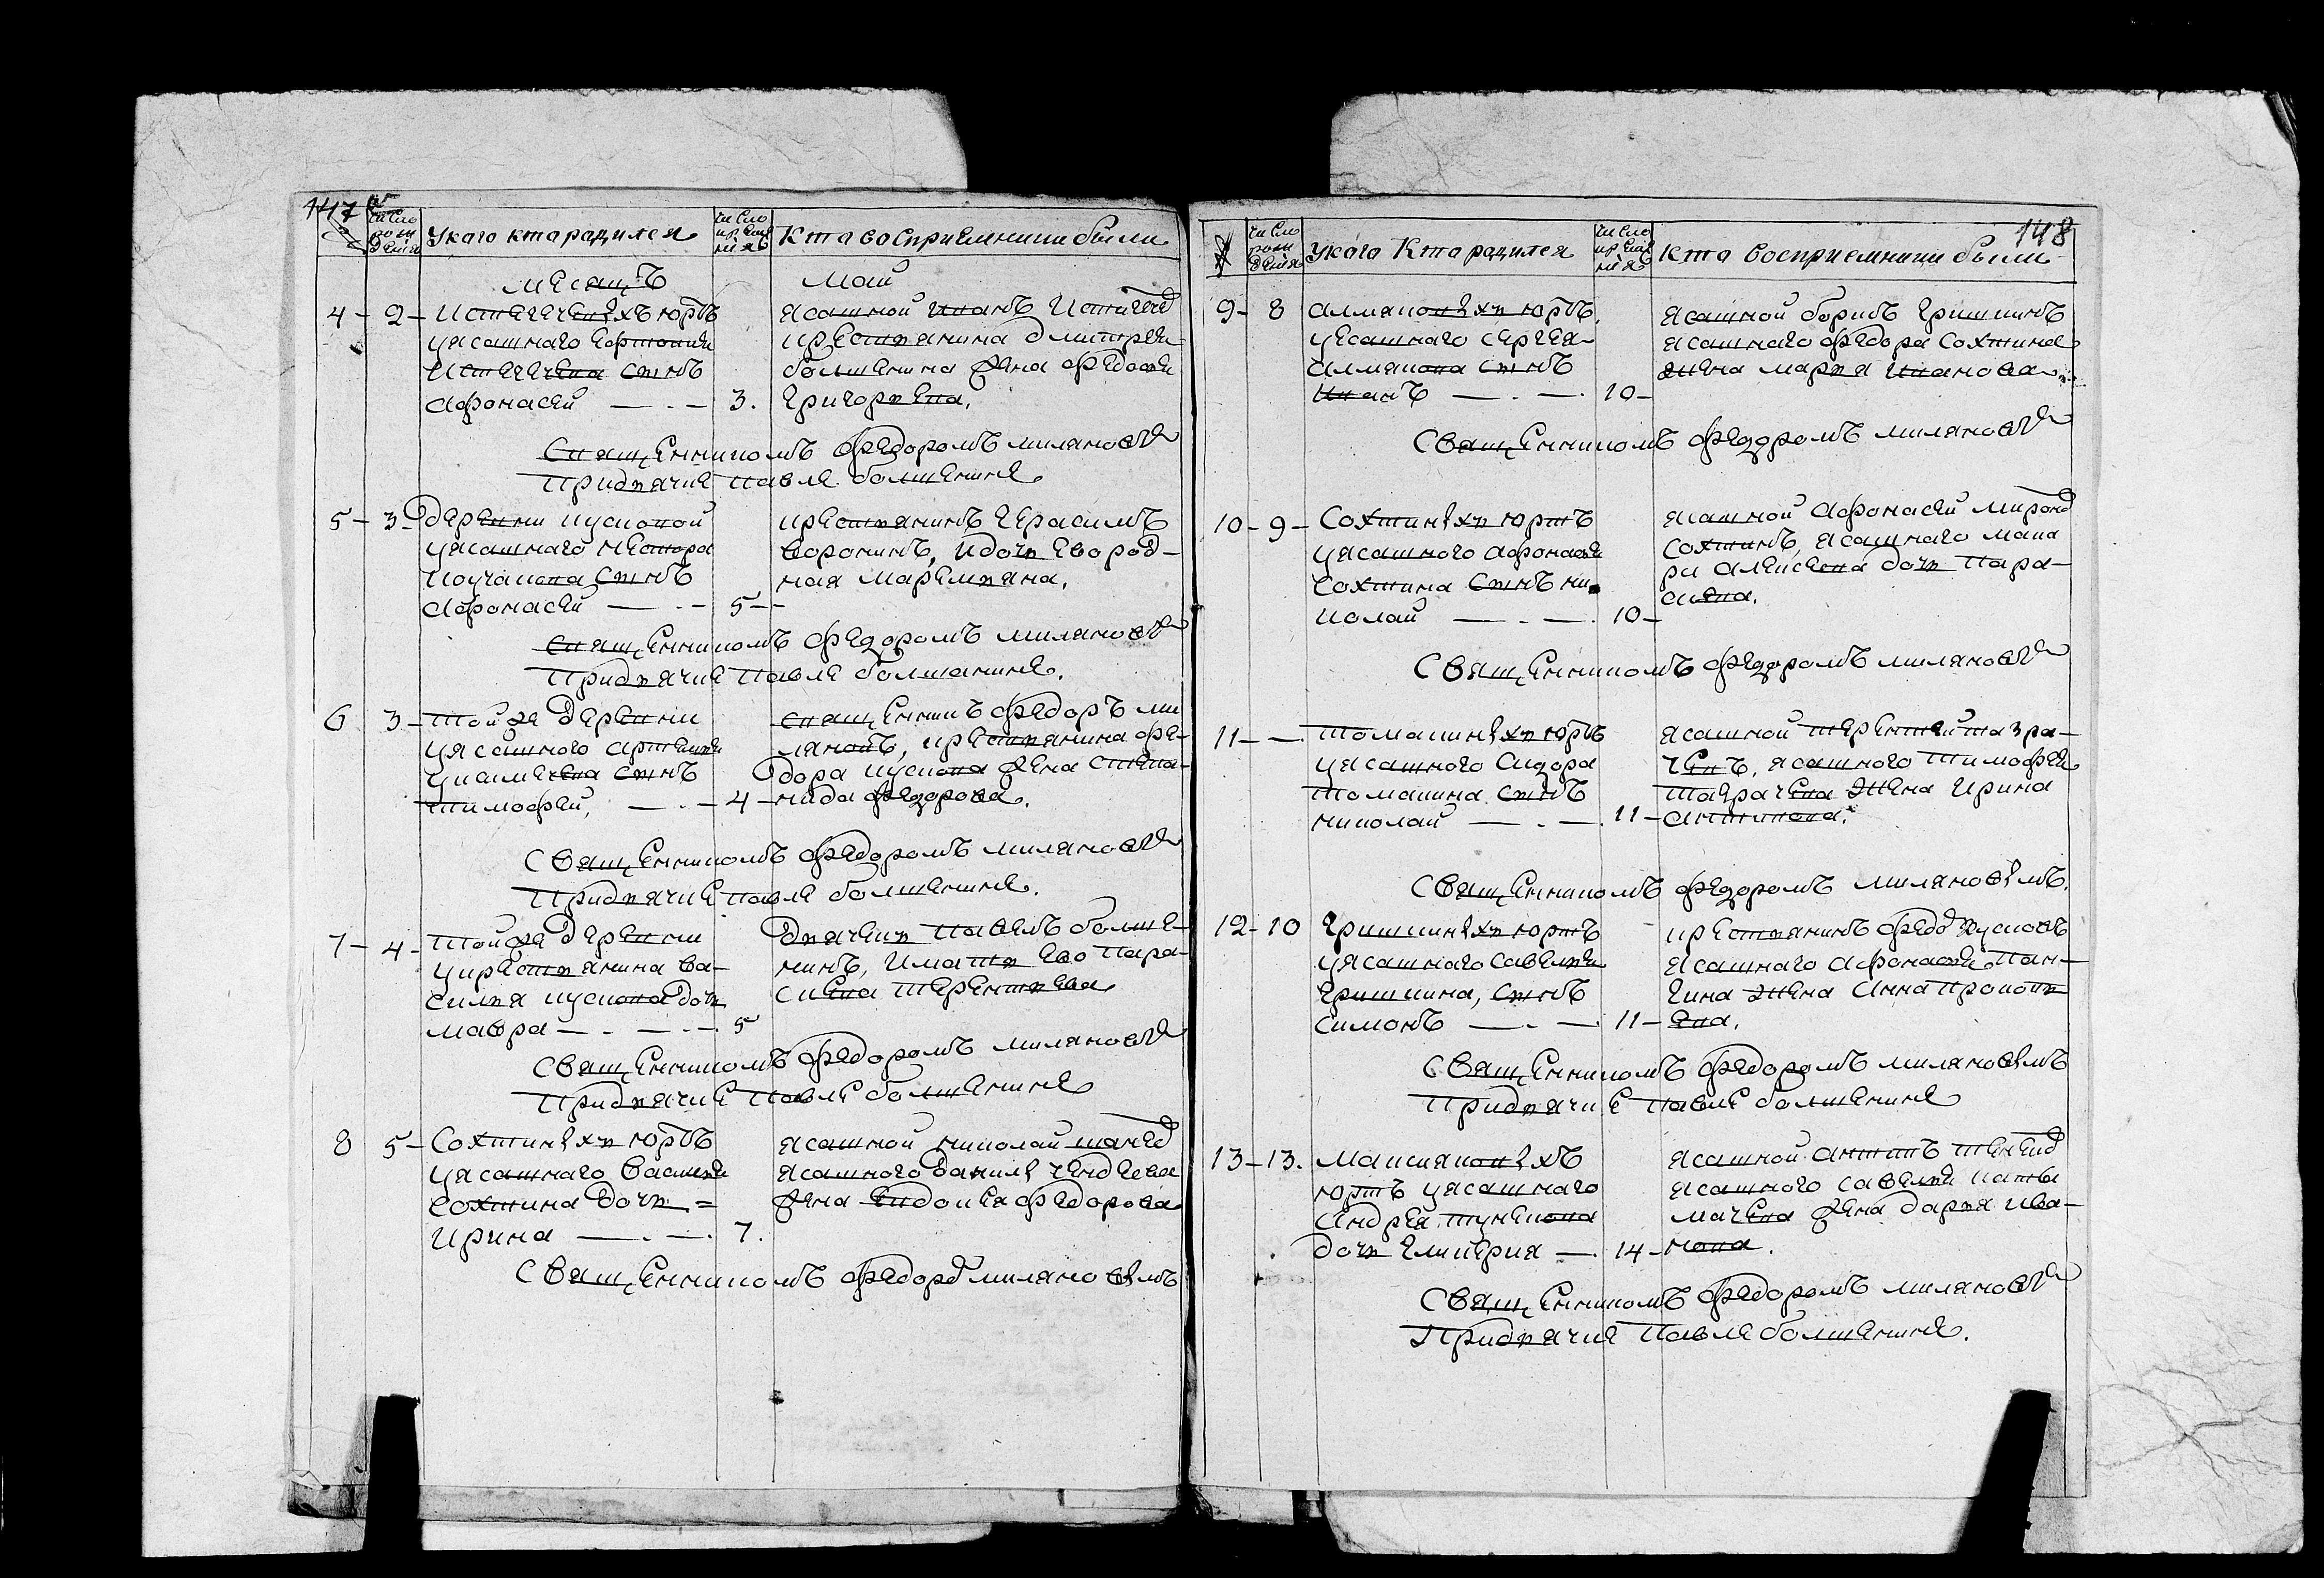 147
число рождения
У кого кто радился
число крещения
Кто восприемники были
месяцъ май
4 - 2 - Истегеченыхъ юртъ
у ясашнаго
Истегечева сынъ
Афонасей — . — 3.
ясашной иванъ
крестьянина дмитрея
болшенина жена федосья
Григорьева.
Священникомъ Федоромъ миляновы
При дьячке павле болшенине.
5 - 3 - деревни кусковой
у ясашнаго нестора
сынъ
Афонасей — . — 5 -
крестьянинъ Герасимъ
воронинъ, и дочь ево род-
ная маремьяна.
священникомъ Федоромъ миляновы
При дьячке павле болшанине.
6 3 - той же деревни
у ясашного артемья
сынъ
тимофей, — . — 4 -
священникъ Федоръ ми
ляновъ, крестьянина фе-
дора кускова жена степа-
нида федорова.
Священникомъ Федоромъ миляновы
При дьячке павле болшенине.
7 - 4 - той же деревни
у крестьянина ва-
силья кускова дочь
мавра — . — . — 5
дьячекъ павелъ болше-
нинъ, и мать ево пара-
скева терентьева
Священникомъ Федоромъ миляновы
При дьячке павле болшенине
8 5 - Сохтиныхъ юртъ
у ясашнаго василья
Сохтина дочь =
ирина — . — . 7.
ясашной николай
ясашного данилы
жена евдокея федорова
Священникомъ Федоромъ миляновымъ
148
число рождения
У кого Кто радился
число крещения
Кто восприемники были
9 - 8 юртъ
у ясашного сергея
сынъ
иванъ — . — . 10 -
ясашной борисъ Гришкинъ
ясашнаго федора Сохтина
жена марья иванова
Священникомъ Федоромъ миляновы
10 - 9 - Сохтиныхъ юртъ
у ясашного афонасья
Сохтина сынъ ни
колай — . — . 10 -
ясашной Афонасей
Сохтинъ, ясашнаго мака
ри алексеева дочь пара-
скева.
Священникомъ Федоромъ миляновы
11 - - . томакиныхъ юртъ
у ясашного сидора
томакина сынъ
николай — . — . 11 -
ясашной терентей тазра-
чевъ, ясашного тимофея
тазрачева жена ирина
антипова.
Священникомъ Федоромъ миляновымъ.
12 - 10 Гришкиныхъ юртъ
у ясашнаго савелья
Гришкина, сынъ
симонъ — . — 11 -
крестьянинъ федоръ кусковъ
ясашнаго афонасья пан-
гина жена Анна прокопь
ева.
Священникомъ Федоромъ миляновымъ
При дьячке павле болшенине
13 - 13. юртъ у ясашнаго
Андрея
дочь Гликерия — . 14 -
ясашной антипъ
ясашного савелья
жена дарья ива-
нова.
Священникомъ Федоромъ миляновы
При дьячке павле болшенине.